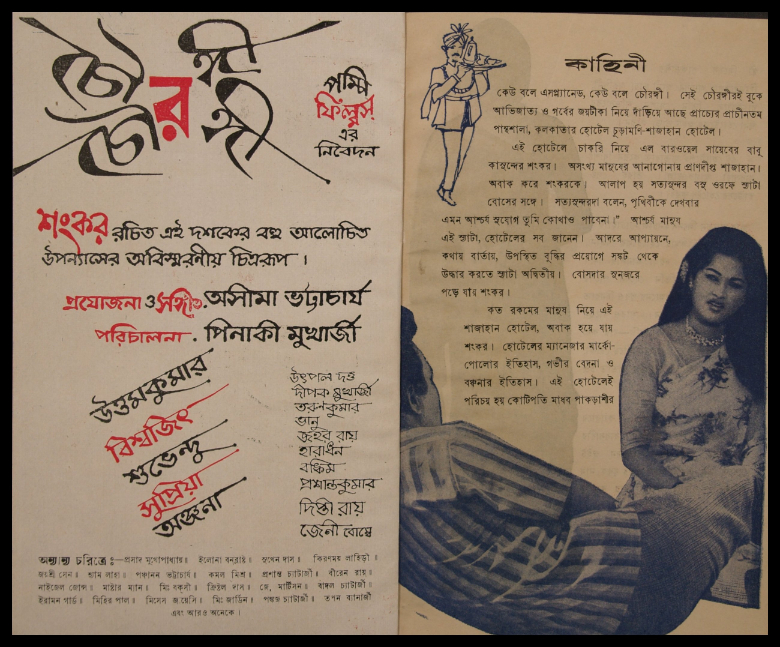 চৌরঙ্গী
চৌরঙ্গী
পম্পি
ফিল্মস্
এর
নিবেদন
শংকর রচিত এই দশকের বহু আলোচিত
উপন্যাসের অবিস্মরণীয় চিত্ররূপ ।
প্রযোজনা ও সঙ্গীত . অসীমা ভট্টাচার্য
পরিচালনা . পিনাকী মুখার্জী
উত্তমকুমার
বিশ্বজিৎ
শুভেন্দু
সুপ্রিয়া
অঞ্জনা
উৎপল দত্ত
দীপক মুখার্জী
তরুণকুমার
ভানু
জহর রায়
হারাধন
বঙ্কিম
প্রশান্তকুমার
দিপ্তী রায়
জেনী বোম্বে
অন্যান্য চরিত্রে :—প্রসাদ মুখোপাধ্যায়॥ ইলোনা ॥ সুখেন দাস॥ কিরণময় লাহিড়ী॥
জয়শ্রী সেন॥ শ্যাম লাহা॥ পঞ্চানন ভট্টাচার্য॥ কমল মিশ্র॥ প্রশান্ত চ্যাটার্জী॥ বীরেন রায়॥
নাইজেল জোন্স॥ মাষ্টার ম্যান॥ মিঃ বকসী॥ ক্রিষ্টল দাস॥ জে, মার্টিসন॥ বাদল চ্যাটার্জী॥
ইরামন গার্ড॥ মিহির পাল॥ মিসেস জয়েসি॥ মিঃ জার্ডিন॥ পঙ্কজ চ্যাটার্জী॥ তপন ব্যানার্জী
এবং আরও অনেকে।
কাহিনী
কেউ বলে এসপ্ল্যানেড, কেউ বলে চৌরঙ্গী। সেই চৌরঙ্গীরই বুকে
আভিজাত্য ও গর্বের জয়টীকা নিয়ে দাঁড়িয়ে আছে প্রাচ্যের প্রাচীনতম
পান্থশালা, কলকাতার হোটেল চূড়ামণি-শাজাহান হোটেল।
এই হোটেলে চাকরি নিয়ে এল বারওয়েল সায়েবের বাবু
কাসুন্দের শংকর। অসংখ্য মানুষের আনাগোনায় প্রাণদীপ্ত শাজাহান।
অবাক করে শংকরকে। আলাপ হয় সত্যসুন্দর বসু ওরফে স্যাটা
বোসের সঙ্গে। সত্যসুন্দরদা বলেন, পৃথিবীকে দেখবার
এমন আশ্চর্য সুযোগ তুমি কোথাও পাবেনা।” আশ্চর্য মানুষ
এই স্যাটা, হোটেলের সব জানেন। আদরে আপ্যায়নে,
কথায় বার্তায়, উপস্থিত বুদ্ধির প্রয়োগে সঙ্কট থেকে
উদ্ধার করতে স্যাটা অদ্বিতীয়। বোসদার সুনজরে
পড়ে যায় শংকর।
কত রকমের মানুষ নিয়ে এই
শাজাহান হোটেল, অবাক হয়ে যায়
শংকর। হোটেলের ম্যানেজার মার্কো-
পোলোর ইতিহাস, গভীর বেদনা ও
বঞ্চনার ইতিহাস। এই হোটেলেই
পরিচয় হয় কোটিপতি মাধব পাকড়াশীর